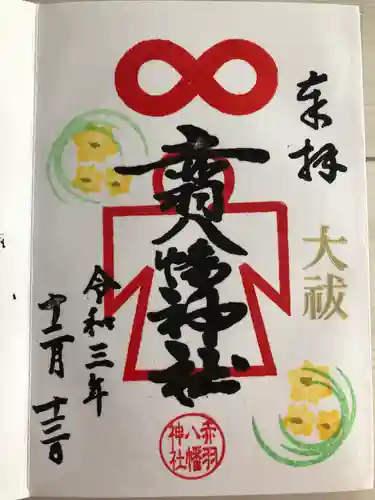 奉拝
大祓
赤羽八幡神社
令和三年
十二月十三日
赤羽
八幡
神社